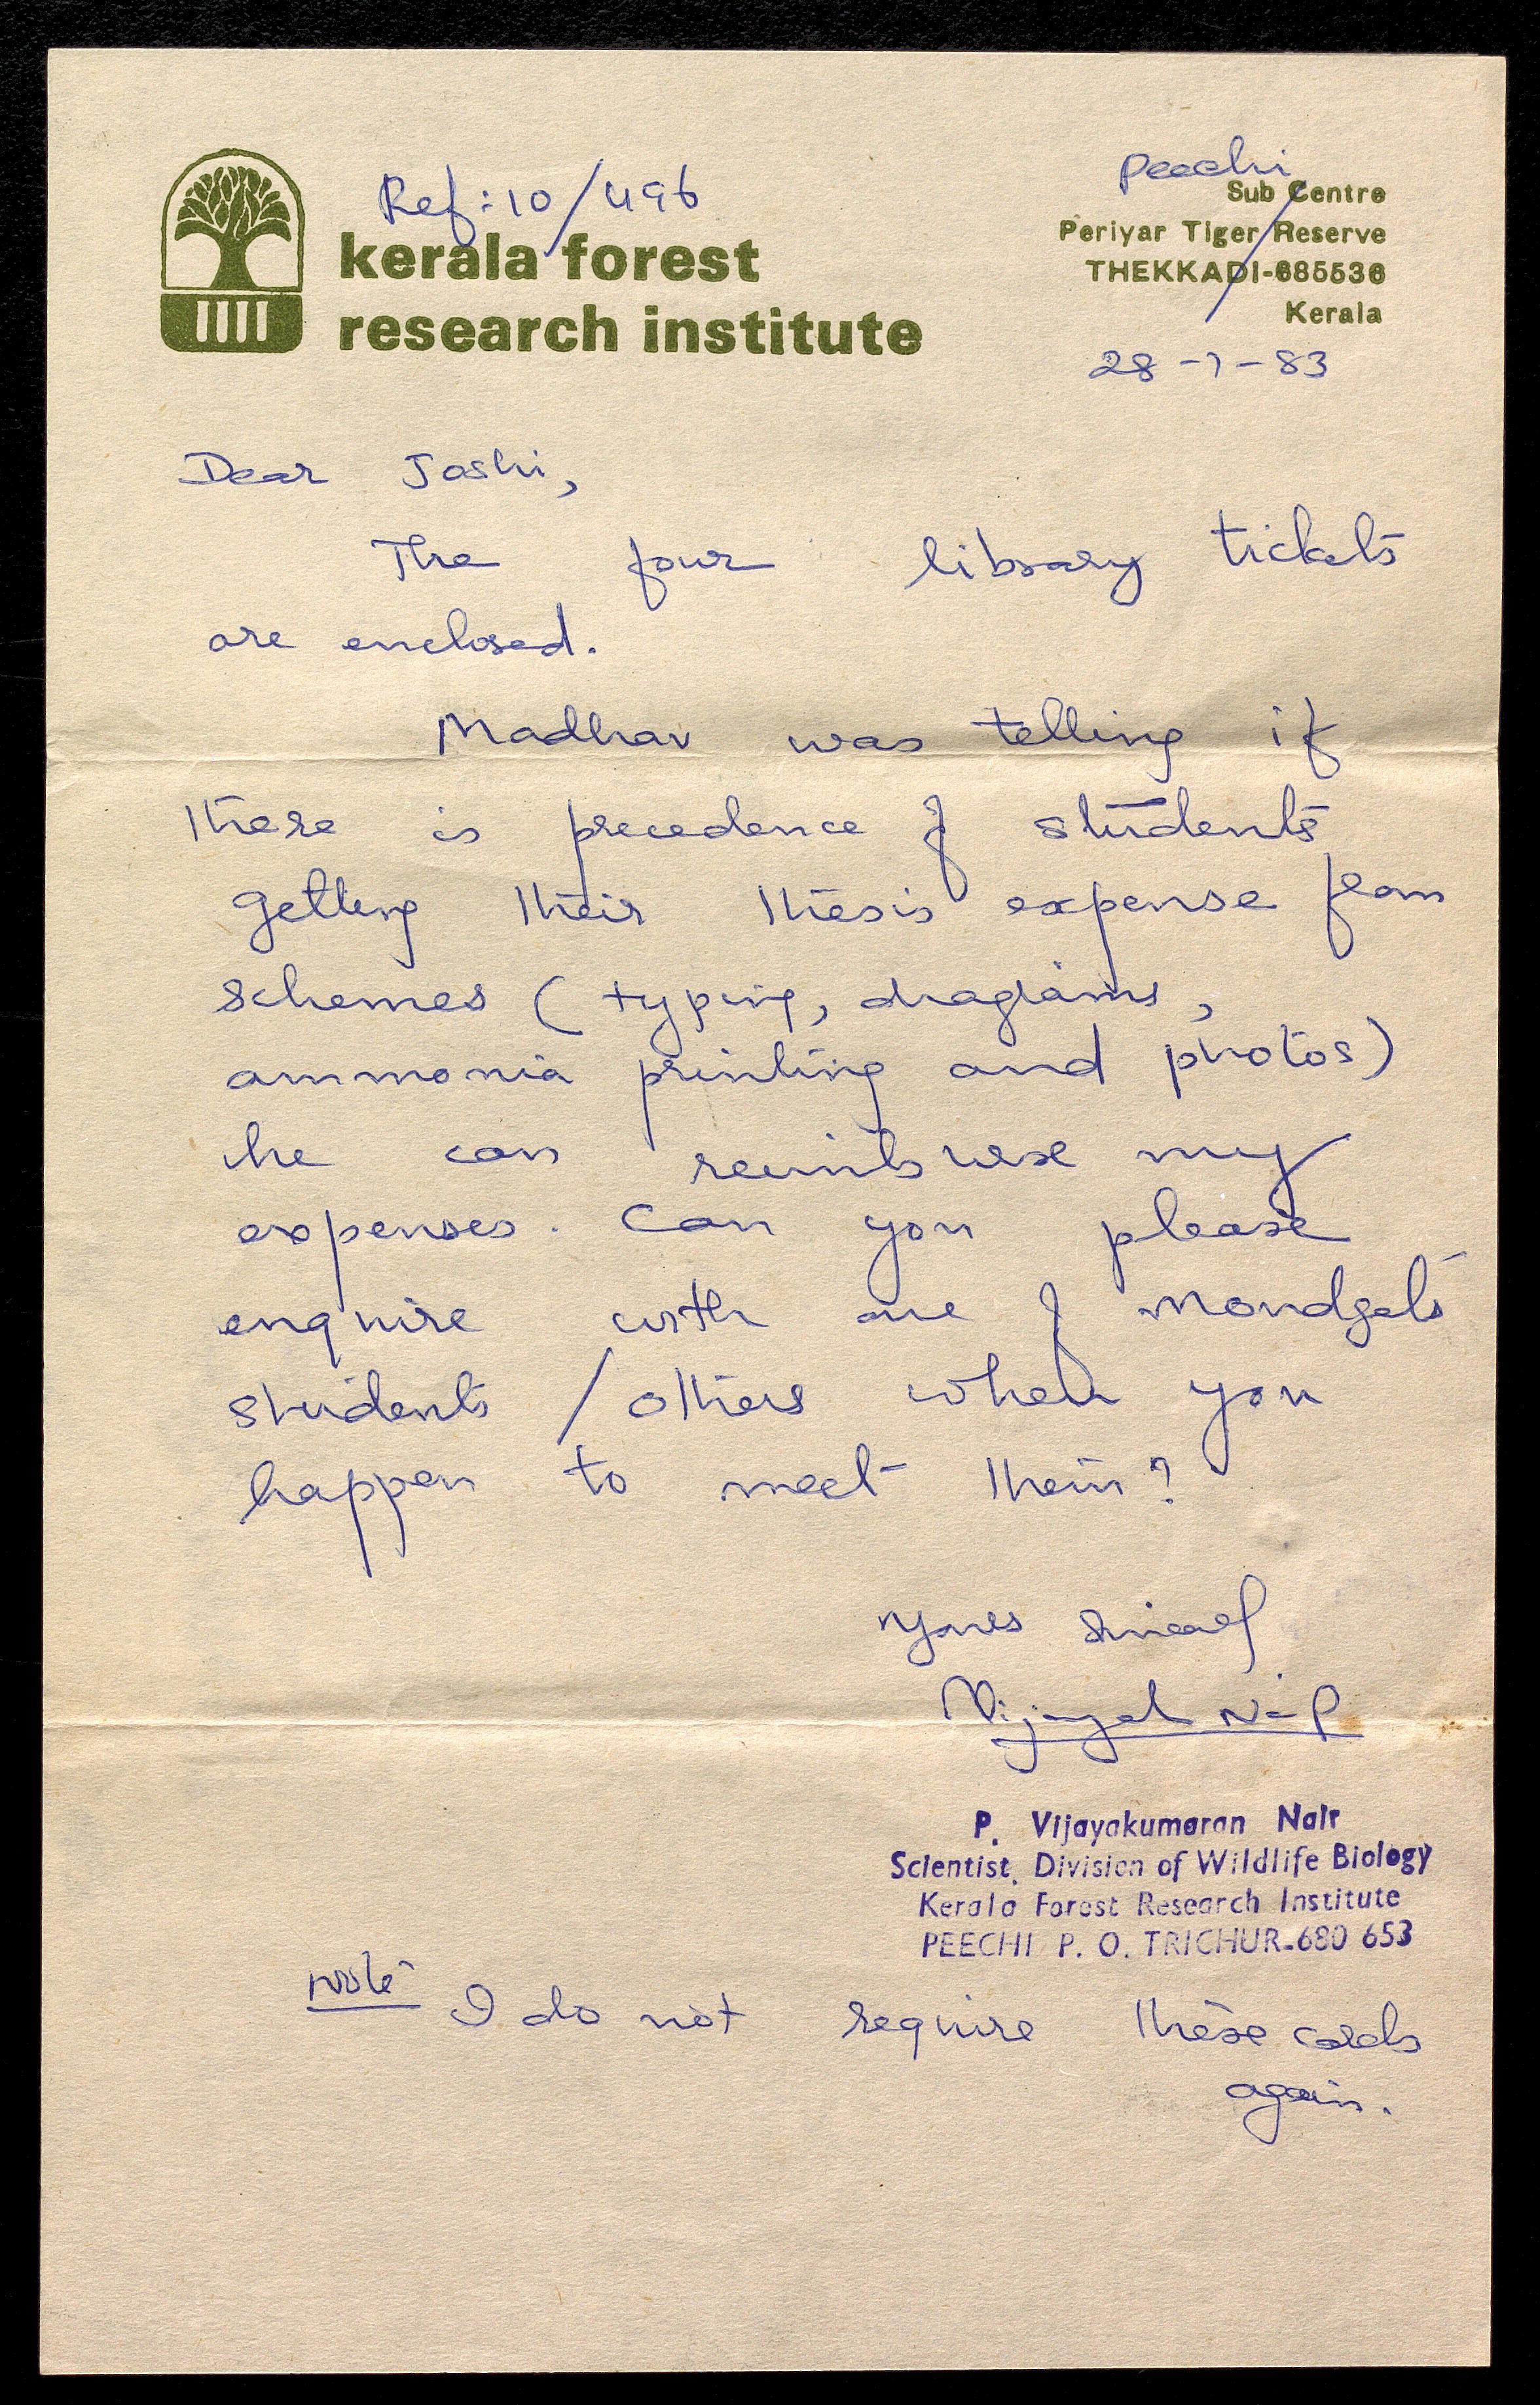 Ref: 10/496
kerala forest
research institute
Peechi
Sub Centre
Periyar Tiger Reserve
THEKKADI-685536
Kerala
28-7-83
Dear Joshi,
The four library tickets
are enclosed.
Madhav was telling if
there is precedence of students
getting their thesis expense from
schemes (typing, diagrams,
ammonia printing and photos)
he can reimburse my
expenses. Can you please
enquire with one of
students / others when you
happen to meet them?
Yours sincerely
P. Vijayakumaran Nair
Scientist, Division of Wildlife Biology
Kerala Forest Research Institute
PEECHI P. O. TRICHUR-680 653
Note I do not require these cards
again.